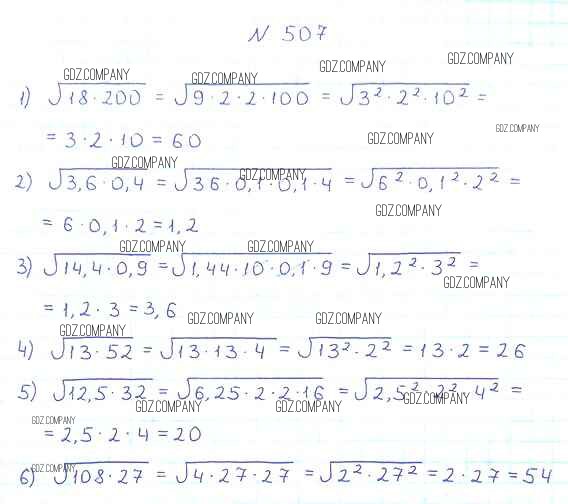 N 507
GDZ.COMPANY GDZ.COMPANY GDZ.COMPANY GDZ.COMPANY
1) √18·200 = √9·2·2·100 = √3²·2²·10² =
= 3·2·10 = 60 GDZ.COMPANY GDZ.COMPANY
GDZ.COMPANY GDZ.COMPANY
2) √3,6·0,4 = √36·0,1·0,1·4 = √6²·0,1²·2² =
= 6·0,1·2 = 1,2 GDZ.COMPANY
GDZ.COMPANY GDZ.COMPANY
3) √14,4·0,9 = √1,44·10·0,1·9 = √1,2²·3² =
GDZ.COMPANY
= 1,2·3 = 3,6
GDZ.COMPANY GDZ.COMPANY GDZ.COMPANY
4) √13·52 = √13·13·4 = √13²·2² = 13·2 = 26
5) √12,5·32 = √6,25·2·2·16 = √2,5²·2²·4² =
GDZ.COMPANY GDZ.COMPANY GDZ.COMPANY
GDZ.COMPANY
= 2,5·2·4 = 20
GDZ.COMPANY
6) √108·27 = √4·27·27 = √2²·27² = 2·27 = 54